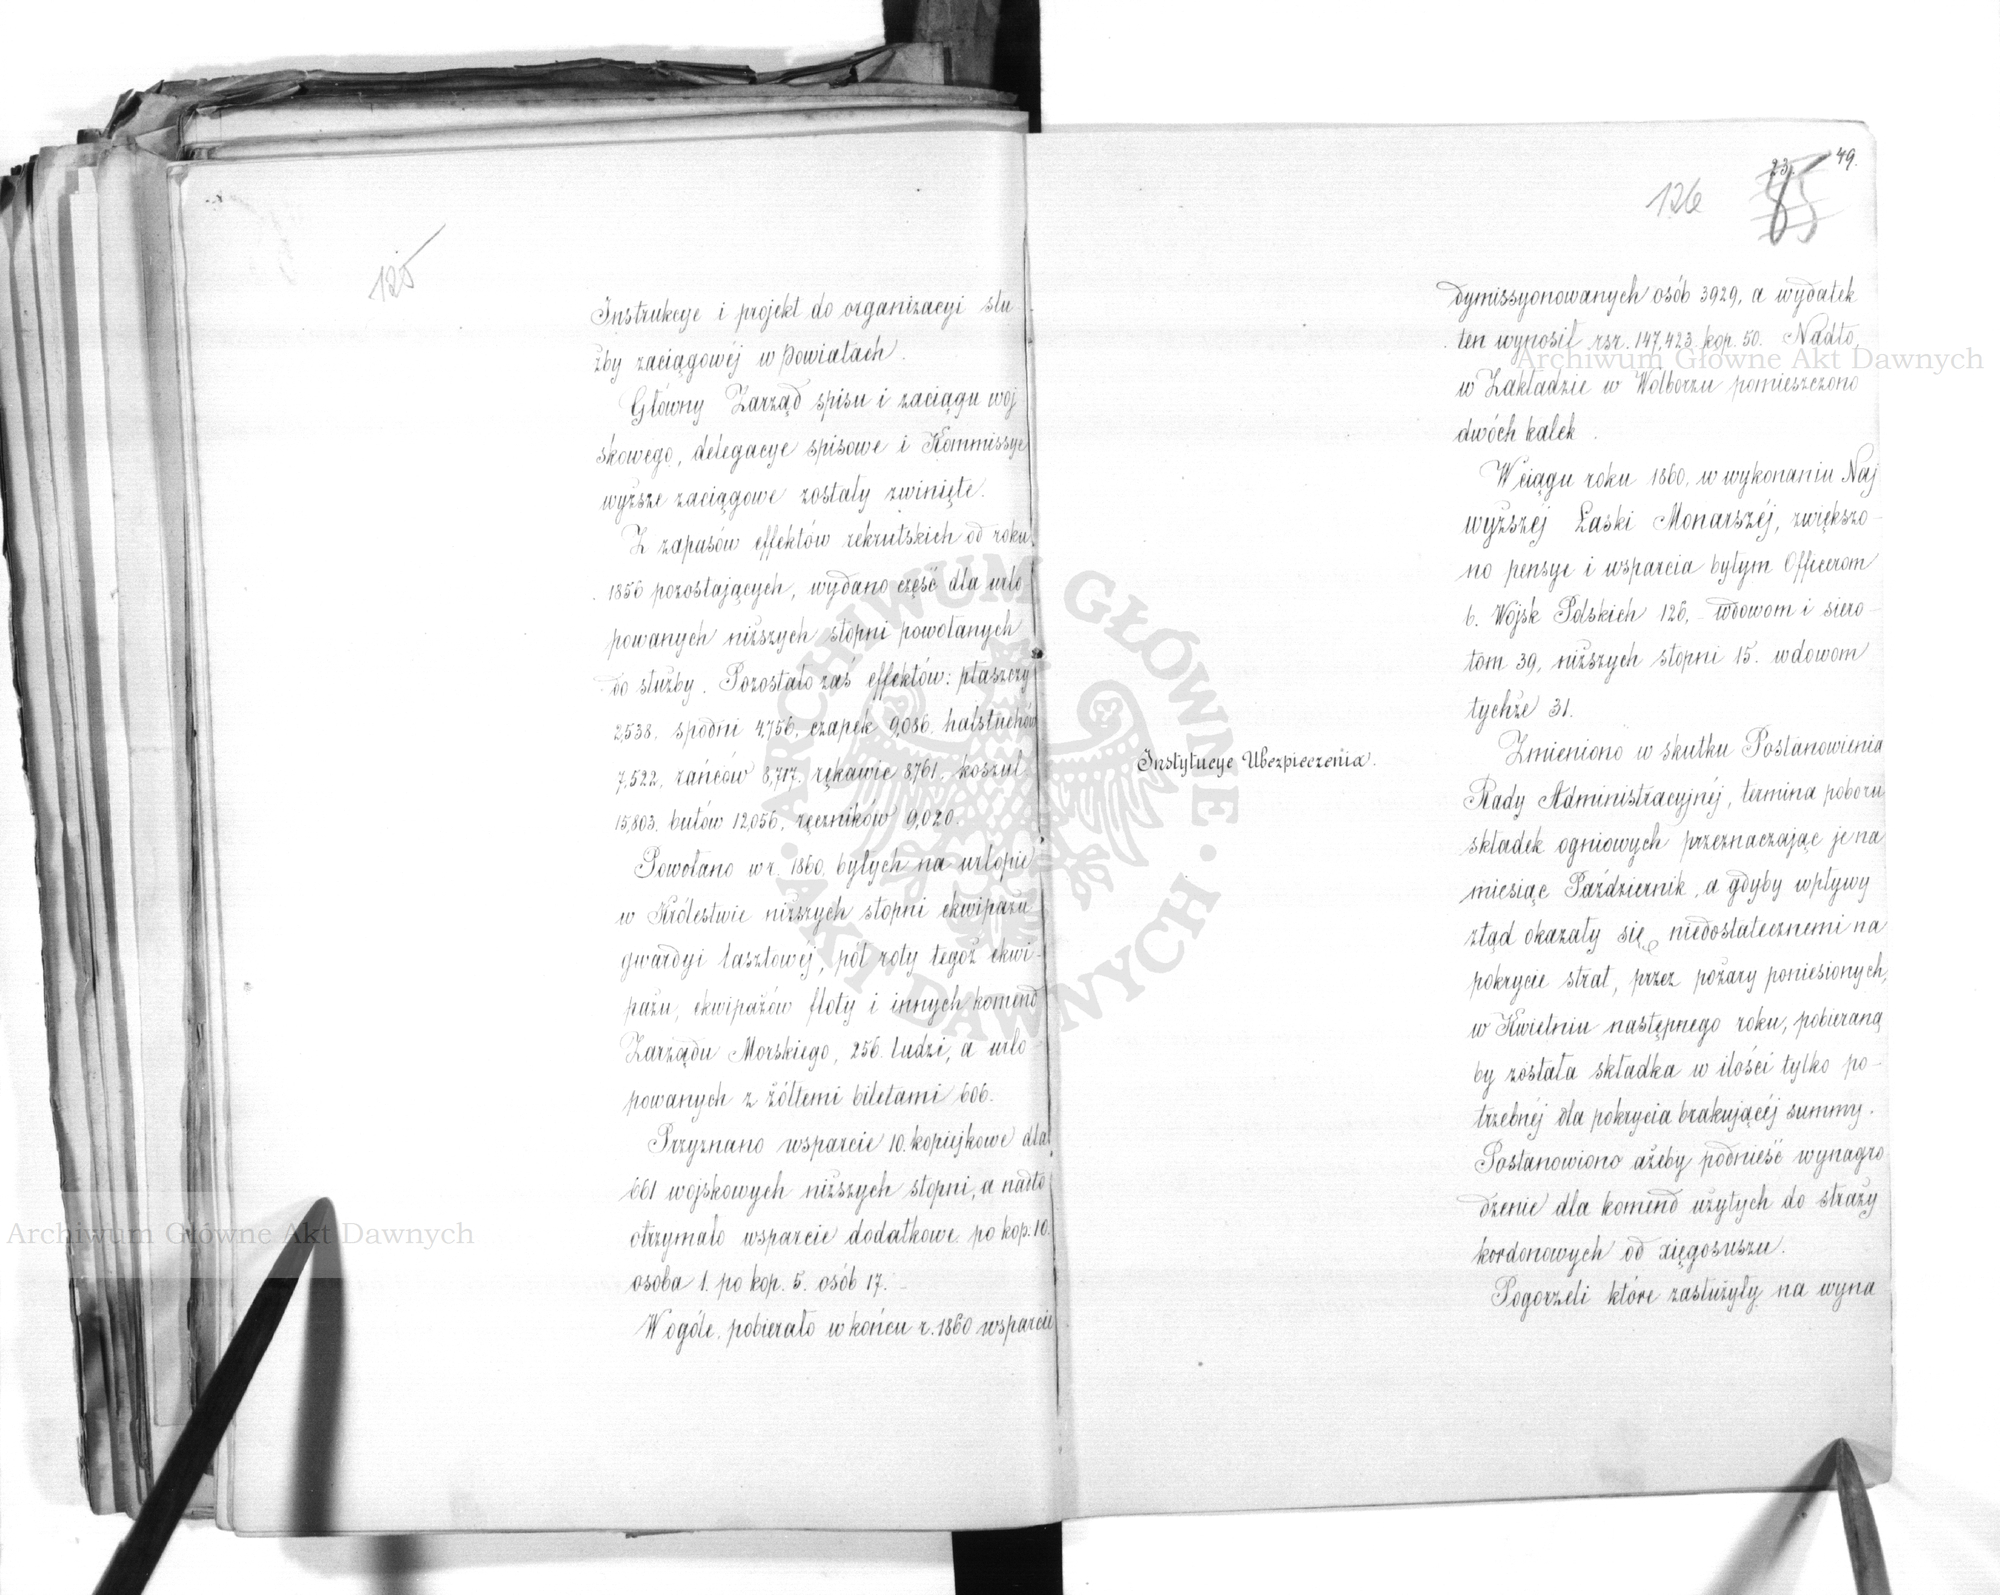 125
Instrukcye i projekt do organizacyi słu
żby zaciągowéj w Powiatach.
Główny Zarząd spisu i zaciągu woj
skowego, delegacye spisowe i Kommissye
wyższe zaciągowe zostały zwinięte.
Z zapasów effektów rekrutskich od roku
1856 pozostających, wydano część dla urlo
powanych niższych stopni powołanych
do służby. Pozostało zaś effektów: płaszczy
2,538. spodni 4,756, czapek 9,086. halstuchów
7,522, rańców 8,717. rękawic 8761. koszul
15,803. butów 12,056, ręczników 9,020.
Powołano w r. 1860. byłych na urlopie
w Królestwie niższych stopni ekwipażu
gwardyi łasztowéj, pół roty tegoż ekwi-
pażu, ekwipażów floty i innych komend
Zarządu Morskiego, 256. ludzi, a urlo-
powanych z żółtemi biletami 606.
Przyznano wsparcie 10. kopiejkowe dla
661 wojskowych niższych stopni, a nadto
otrzymało wsparcie dodatkowe po kop. 10.
osoba 1. po kop. 5. osób 17.
W ogóle, pobierało w końcu r. 1860 wsparcie
126
23.
85
49.
dymissyonowanych osób 3929, a wydatek
ten wynosił rsr. 147,423 kop. 50. Nadto,
w Zakładzie w Wolborzu pomieszczono
dwóch kalek.
W ciągu roku 1860, w wykonaniu Naj
wyższej Łaski Monarszéj, zwiększo-
no pensye i wsparcia byłym Officerom
b. Wojsk Polskich 126, wdowom i siero-
tom 39, niższych stopni 15. wdowom
tychże 31.
Instytucye Ubezpieczenia.
Zmieniono w skutku Postanowienia
Rady Administracyjnéj, termina poboru
składek ogniowych przeznaczając je na
miesiąc Październik, a gdyby wpływy
ztąd okazały się niedostatecznemi na
pokrycie strat, przez pożary poniesionych,
w Kwietniu następnego roku, pobieraną
by została składka w ilości tylko po-
trzebnéj dla pokrycia brakującéj summy.
Postanowiono ażeby podnieść wynagro
dzenie dla komend użytych do straży
kordonowych od xięgosuszu.
Pogorzeli które zasłużyły na wyna
Archiwum Główne Akt Dawnych
Archiwum Główne Akt Dawnych
ARCHIWUM GŁÓWNE · AKT DAWNYCH ·